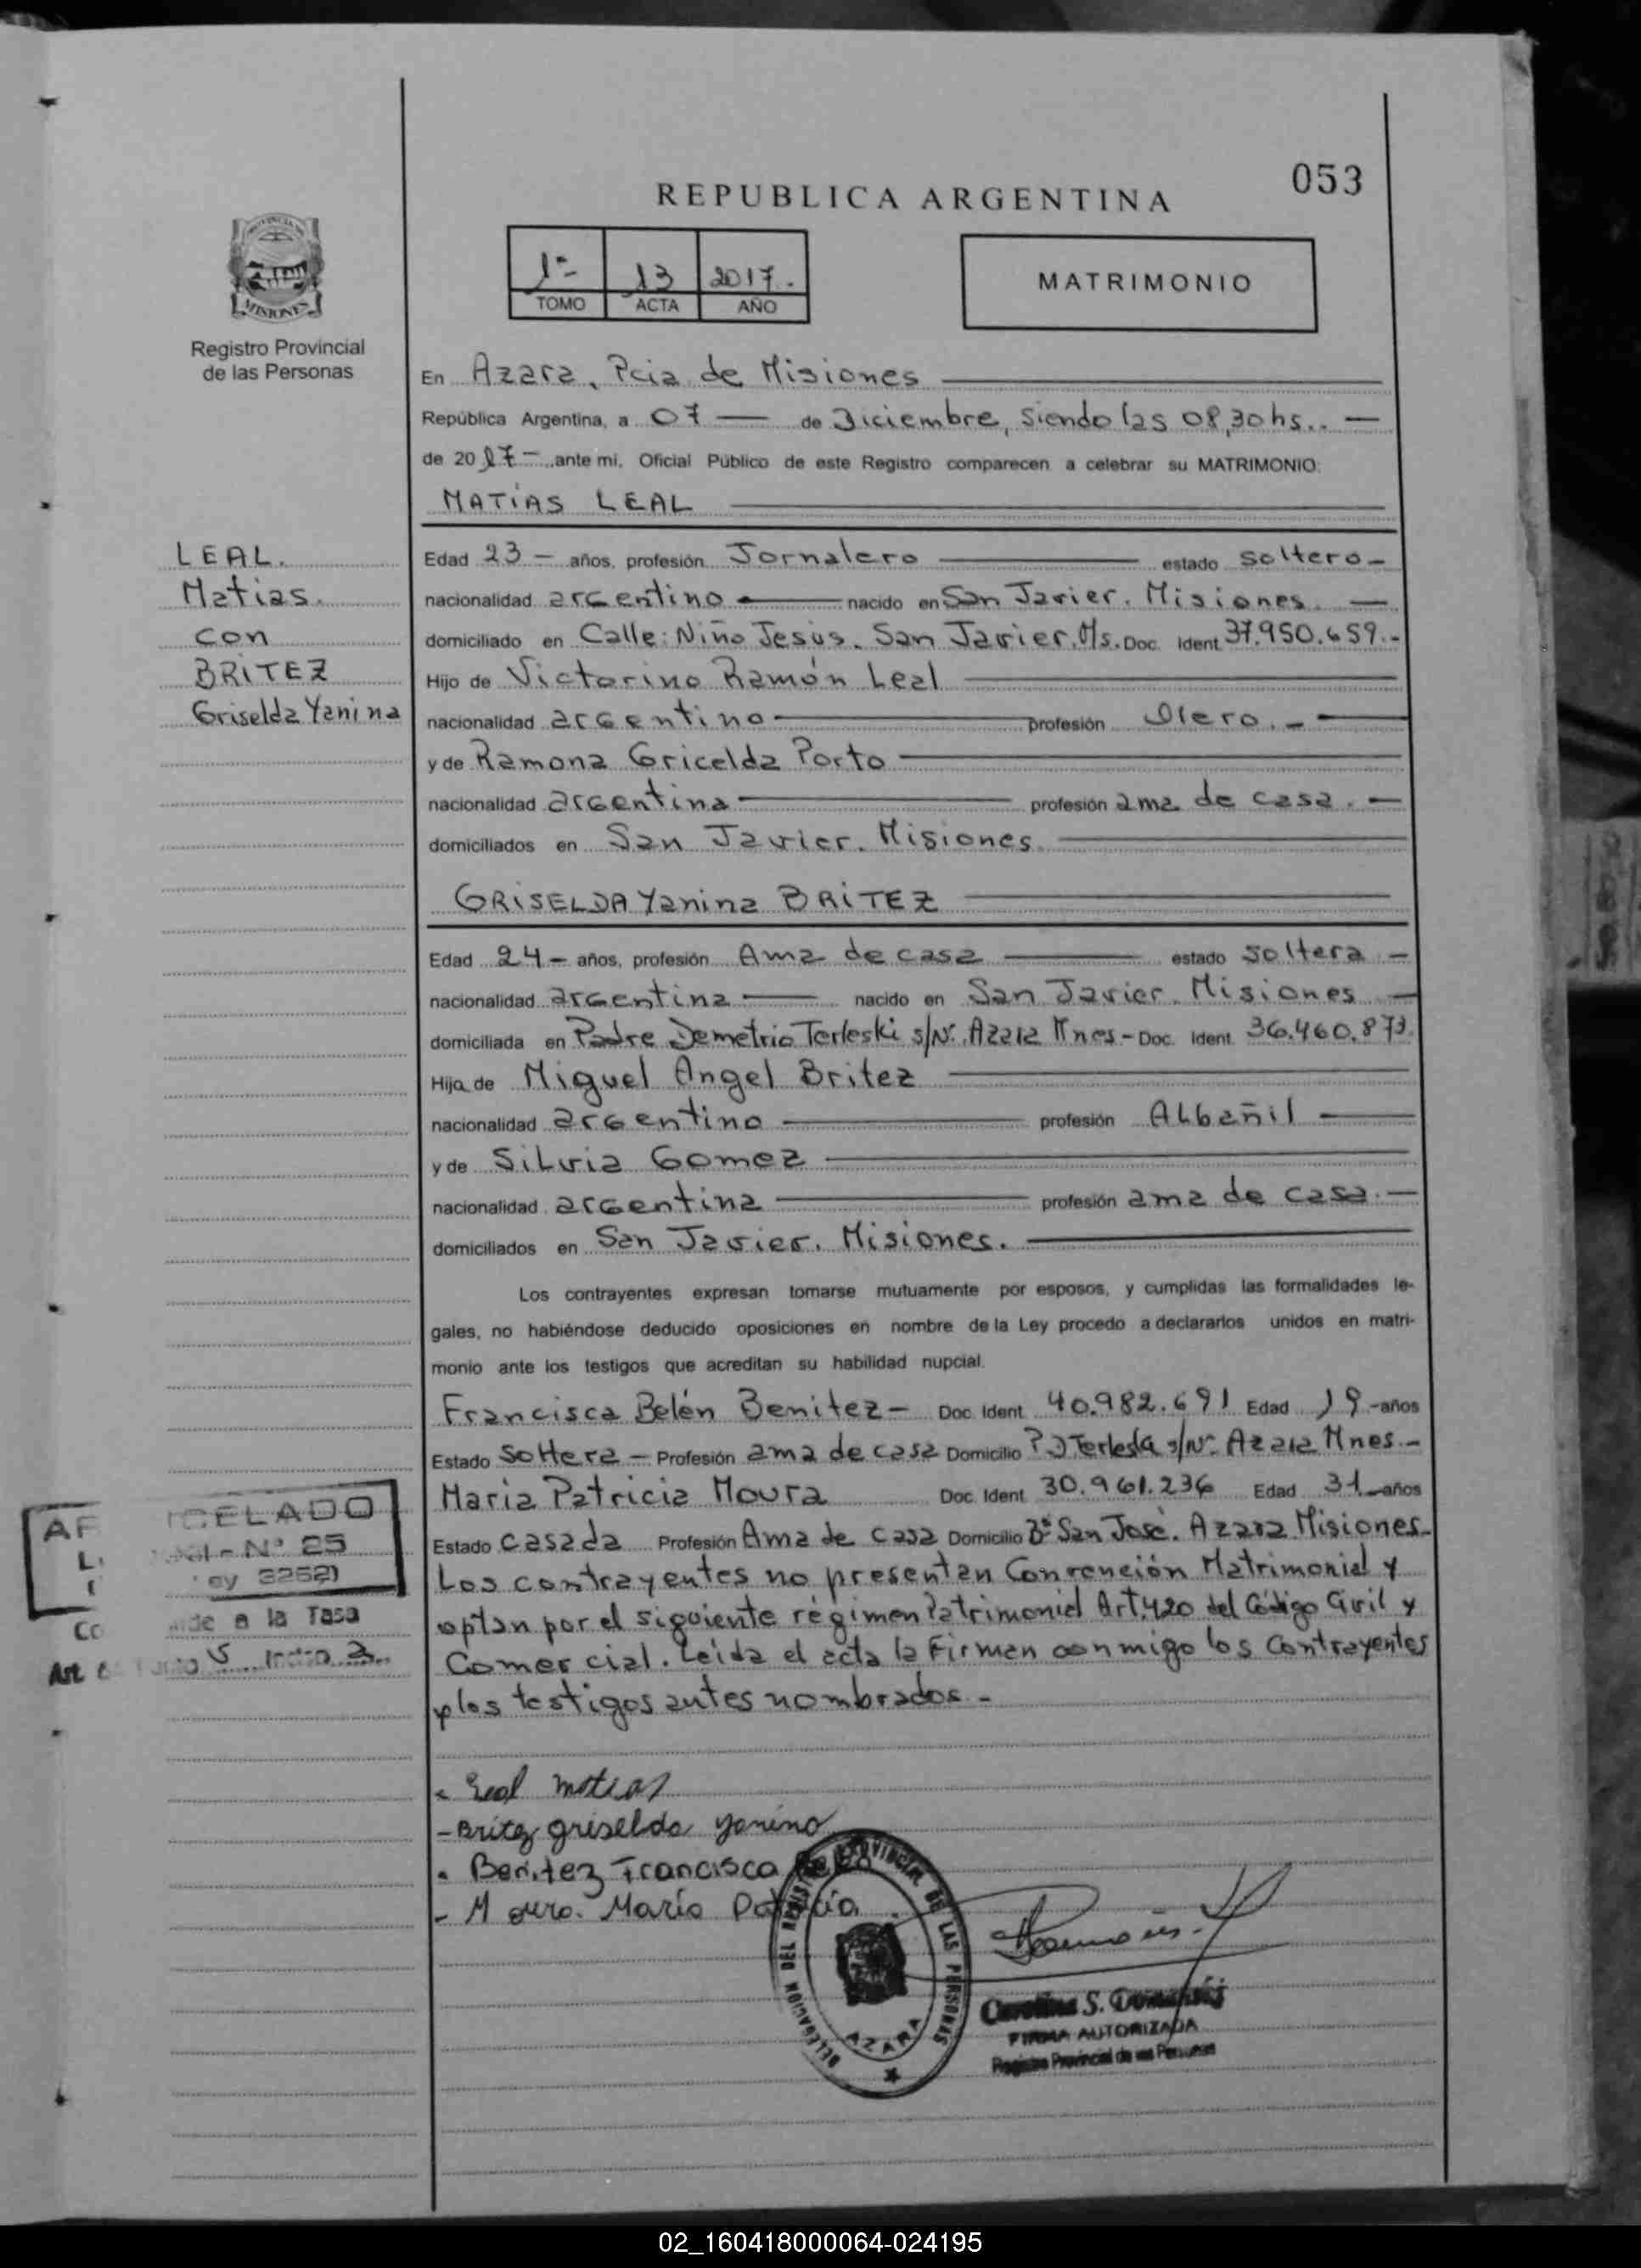 053
REPUBLICA ARGENTINA
1º- 13 2017.-
TOMO ACTA AÑO
MATRIMONIO
PROVINCIA DE
MISIONES
Registro Provincial
de las Personas
En Azara, Pcia de Misiones
República Argentina, a 07 — de Diciembre, siendo las 08,30 hs.. —
de 2017 - ante mi, Oficial Público de este Registro comparecen a celebrar su MATRIMONIO:
MATÍAS LEAL
LEAL.
Matias.
con
BRÍTEZ
Griselda Yanina
Edad 23 - años, profesión Jornalero estado soltero -
nacionalidad argentino nacido en San Javier. Misiones. —
domiciliado en Calle: Niño Jesús. San Javier. Ms. Doc. Ident. 37.950.659.-
Hijo de Victorino Ramón Leal
nacionalidad argentino profesión Olero. -
y de Ramona Gricelda Porto
nacionalidad argentina profesión ama de casa. -
domiciliados en San Javier. Misiones.
GRISELDA Yanina BRÍTEZ
Edad 24 - años, profesión Ama de casa estado soltera -
nacionalidad argentina nacido en San Javier. Misiones —
domiciliada en Padre Demetrio Terleski s/Nº. Azara Mnes - Doc. Ident. 36.460.873.
Hija de Miguel Angel Britez
nacionalidad argentino profesión Albañil
y de Silvia Gomez
nacionalidad argentina profesión ama de casa. -
domiciliados en San Javier. Misiones.
Los contrayentes expresan tomarse mutuamente por esposos, y cumplidas las formalidades le-
gales, no habiéndose deducido oposiciones en nombre de la Ley procedo a declararlos unidos en matri-
monio ante los testigos que acreditan su habilidad nupcial.
Francisca Belén Benitez - Doc. Ident. 40.982.691 Edad 19 - años
Estado soltera - Profesión ama de casa Domicilio P. D Terleski s/Nº. Azara Mnes. -
Maria Patricia Moura Doc. Ident. 30.961.236 Edad 31 - años
Estado casada Profesión Ama de casa Domicilio Bº San José. Azara Misiones.
Los contrayentes no presentan Convención Matrimonial y
optan por el siguiente régimen Patrimonial Art. 420 del Código Civil y
Comercial. Leída el acta la Firman conmigo los contrayentes
y los testigos antes nombrados. -
CELADO
Nº 25
3252)
a la Tasa
Art.
- Leal matias
- Britez griselda yanina
- Benitez Francisca
- Moura. Maria Patricia
DELEGACION DEL REGISTRO PROVINCIAL DE LAS PERSONAS
AZARA
Carolina S.
FIRMA AUTORIZADA
Registro Provincial de las Personas
02_160418000064-024195